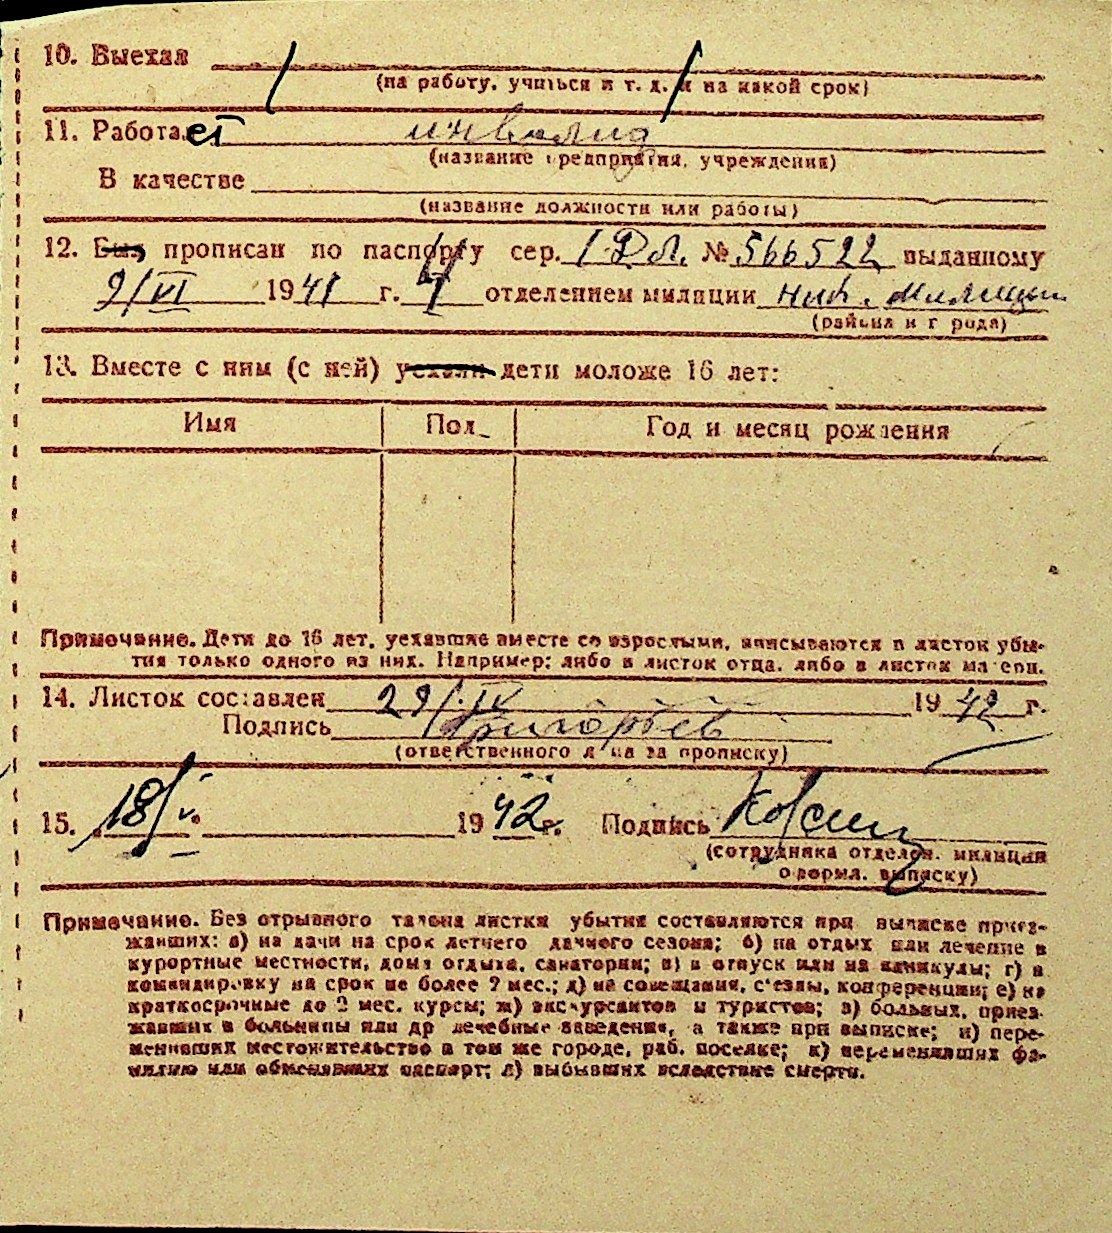 10. Выехал
(на работу, учиться и т. д. и на какой срок)
11. Работает инвалид
(название предприятия, учреждения)
В качестве
(название должности или работы)
12. Был прописан по паспорту сер. № 566522 выданному
9/VI 1941 г. отделением милиции милиции
(района и города)
13. Вместе с ним (с ней) уехали дети моложе 16 лет:
Имя Пол Год и месяц рождения
Примечание. Дети до 16 лет, уехавшие вместе со взрослыми, вписываются в листок убы-
тия только одного из них. Например: либо в листок отца, либо в листок матери.
14. Листок составлен 29/IV 1942 г.
Подпись Григорьев
(ответственного лица за прописку)
15. 18/V 1942 г. Подпись
(сотрудника отделен. милиции
оформл. выписку)
Примечание. Без отрывного талона листки убытия составляются при выписке приез-
жавших: а) на дачи на срок летнего дачного сезона; б) на отдых или лечение в
курортные местности, дома отдыха, санатории; в) в отпуск или на каникулы; г) в
командировку на срок не более 2 мес.; д) на совещания, съезды, конференции; е) на
краткосрочные до 2 мес. курсы; ж) экскурсантов и туристов; з) больных, приез-
жавших в больницы или др лечебные заведения, а также при выписке; и) пере-
менивших местожительство в том же городе, раб. поселке; к) переменивших фа-
милию или обменявших паспорт; л) выбывших вследствие смерти.